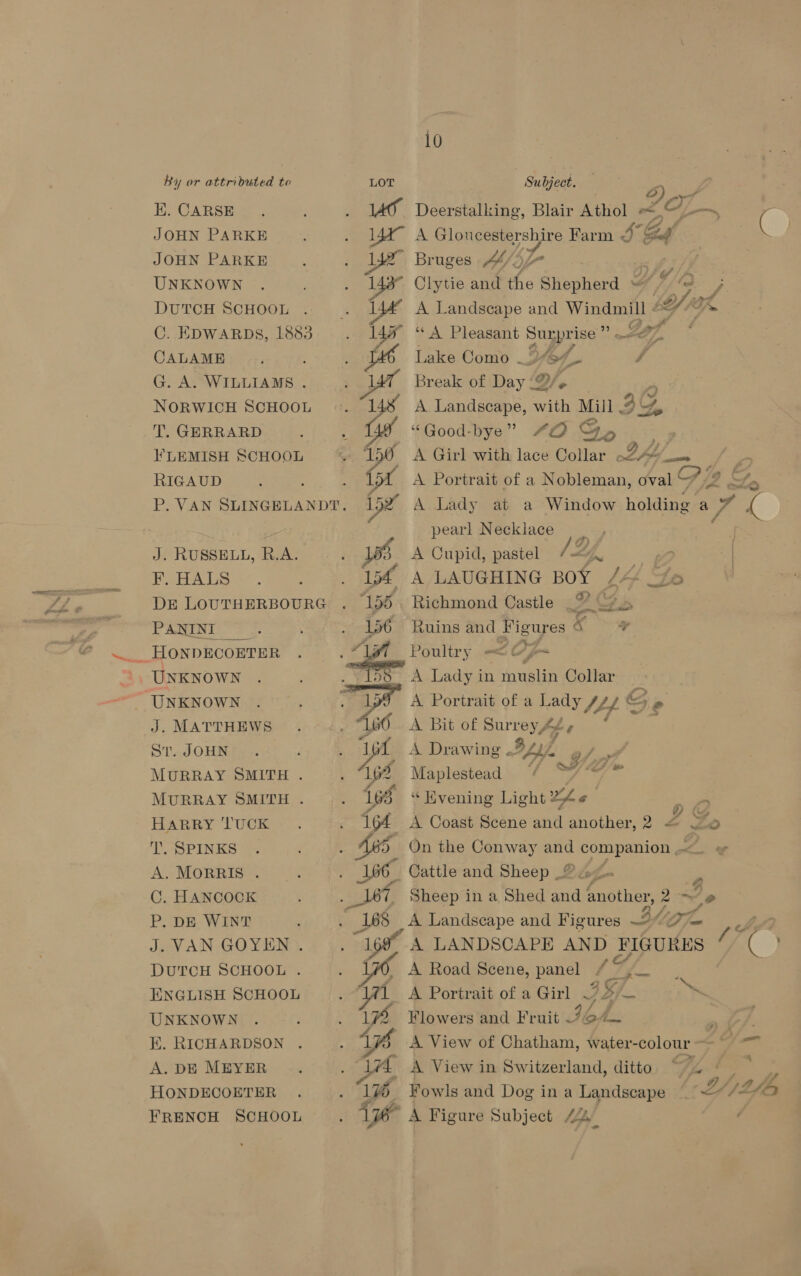 10
By or attributed to LOT Subject.
E. CARSE . . . 140 Deerstalking, Blair Athol
JOHN PARKE . . 141 A Gloucestershire Farm
JOHN PARKE . . 142 Bruges
UNKNOWN . . . 143 Clytie and the Shepherd
DUTCH SCHOOL . . 144 A Landscape and Windmill
C. EDWARDS, 1883 . 145 “A Pleasant Surprise”
CALAME . . . 146 Lake Como
G. A. WILLIAMS . . 147 Break of Day
NORWICH SCHOOL . 148 A Landscape, with Mill
T. GERRARD . . 149 “Good-bye”
FLEMISH SCHOOL . 150 A Girl with lace Collar
RIGAUD . . . 151 A Portrait of a Nobleman, oval
P. VAN SLINGELANDT. 152 A Lady at a Window holding a
pearl Necklace
J. RUSSELL, R.A. . 153 A Cupid, pastel
F. HALS . . . 154 A LAUGHING BOY
DE LOUTHERBOURG . 155 Richmond Castle
PANINI . . . 156 Ruins and Figures
HONDECOETER . . 157 Poultry
UNKNOWN . . . 158 A Lady in muslin Collar
UNKNOWN . . . 159 A Portrait of a Lady
J. MATTHEWS . . 160 A Bit of Surrey
ST. JOHN . . . 161 A Drawing
MURRAY SMITH . . 162 Maplestead
MURRAY SMITH . . 163 “Evening Light”
HARRY TUCK . . 164 A Coast Scene and another, 2
T. SPINKS . . . 165 On the Conway and companion
A. MORRIS . . . 166 Cattle and Sheep
C. HANCOCK . . 167 Sheep in a Shed and another, 2
P. DE WINT . . 168 A Landscape and Figures
J. VAN GOYEN . . 169 A LANDSCAPE AND FIGURES
DUTCH SCHOOL . . 170 A Road Scene, panel
ENGLISH SCHOOL . 171 A Portrait of a Girl
UNKNOWN . . . 172 Flowers and Fruit
E. RICHARDSON . . 173 A View of Chatham, water-colour
A. DE MEYER . . 174 A View in Switzerland, ditto
HONDECOETER . . 175 Fowls and Dog in a Landscape
FRENCH SCHOOL . 176 A Figure Subject